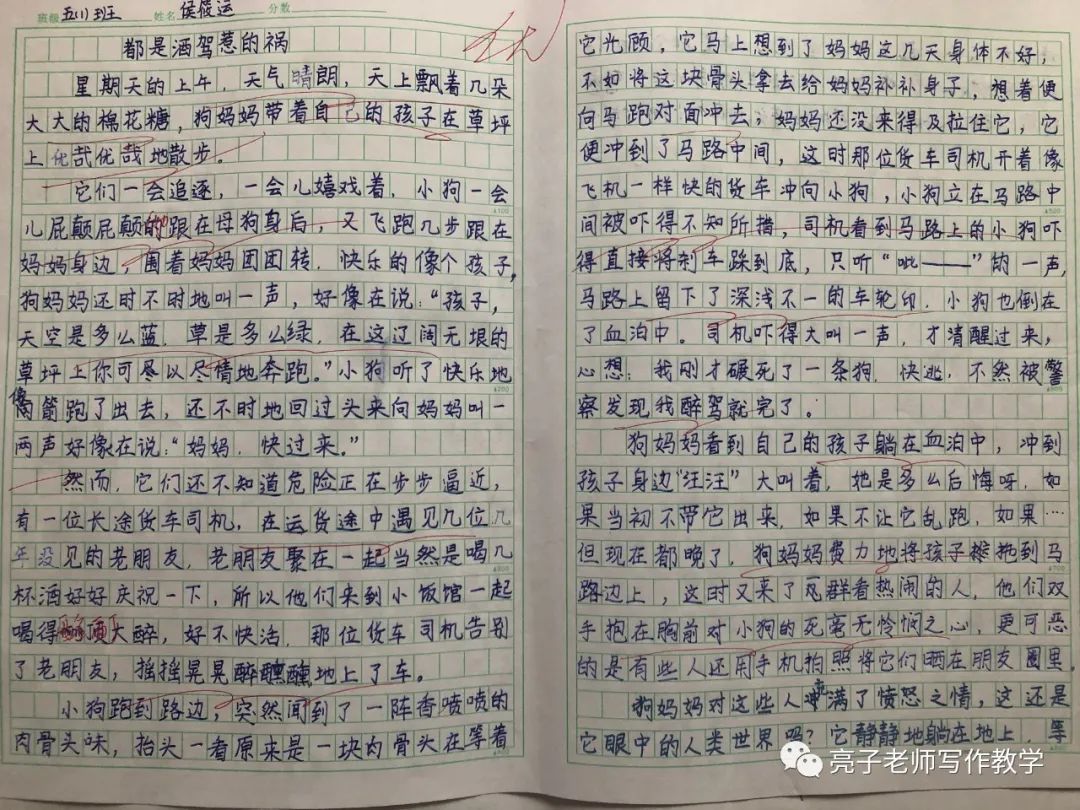 班级 五(1)班 姓名 侯筱运 分数
都是酒驾惹的祸
星期天的上午，天气晴朗，天上飘着几朵
大大的棉花糖，狗妈妈带着自己的孩子在草坪
上优哉优哉地散步。
它们一会追逐，一会儿嬉戏着，小狗一会
儿屁颠屁颠的跟在母狗身后，又飞跑几步跟在
妈妈身边，围着妈妈团团转，快乐的像个孩子，
狗妈妈还时不时地叫一声，好像在说：“孩子，
天空是多么蓝，草是多么绿，在这辽阔无垠的
草坪上你可尽以尽情地奔跑。”小狗听了快乐地
像箭跑了出去，还不时地回过头来向妈妈叫一
两声好像在说：“妈妈，快过来。”
然而，它们还不知道危险正在步步逼近，
有一位长途货车司机，在运货途中遇见几位几
年没见的老朋友，老朋友聚在一起当然是喝几
杯酒好好庆祝一下，所以他们来到小饭馆一起
喝得酩酊大醉，好不快活，那位货车司机告别
了老朋友，摇摇晃晃醉醺醺地上了车。
小狗跑到路边，突然闻到了一阵香喷喷的
肉骨头味，抬头一看原来是一块肉骨头在等着
它光顾，它马上想到了妈妈这几天身体不好，
不如将这块骨头拿去给妈妈补补身子，想着便
向马跑对面冲去，妈妈还没来得及拉住它，它
便冲到了马路中间，这时那位货车司机开着像
飞机一样快的货车冲向小狗，小狗立在马路中
间被吓得不知所措，司机看到马路上的小狗吓
得直接将刹车踩到底，只听“呲——”的一声，
马路上留下了深浅不一的车轮印，小狗也倒在
了血泊中。司机吓得大叫一声，才清醒过来，
心想：我刚才碾死了一条狗，快逃，不然被警
察发现我醉驾就完了。
狗妈妈看到自己的孩子躺在血泊中，冲到
孩子身边“汪汪”大叫着，她是多么后悔呀，如
果当初不带它出来，如果不让它乱跑，如果…
但现在都晚了，狗妈妈费力地将孩子拖到马
路边上，这时又来了群看热闹的人，他们双
手抱在胸前对小狗的死毫无怜悯之心，更可恶
的是有些人还用手机拍照将它们晒在朋友圈里。
狗妈妈对这些人充满了愤怒之情，这还是
它眼中的人类世界吗？它静静地躺在地上，等
亮子老师写作教学